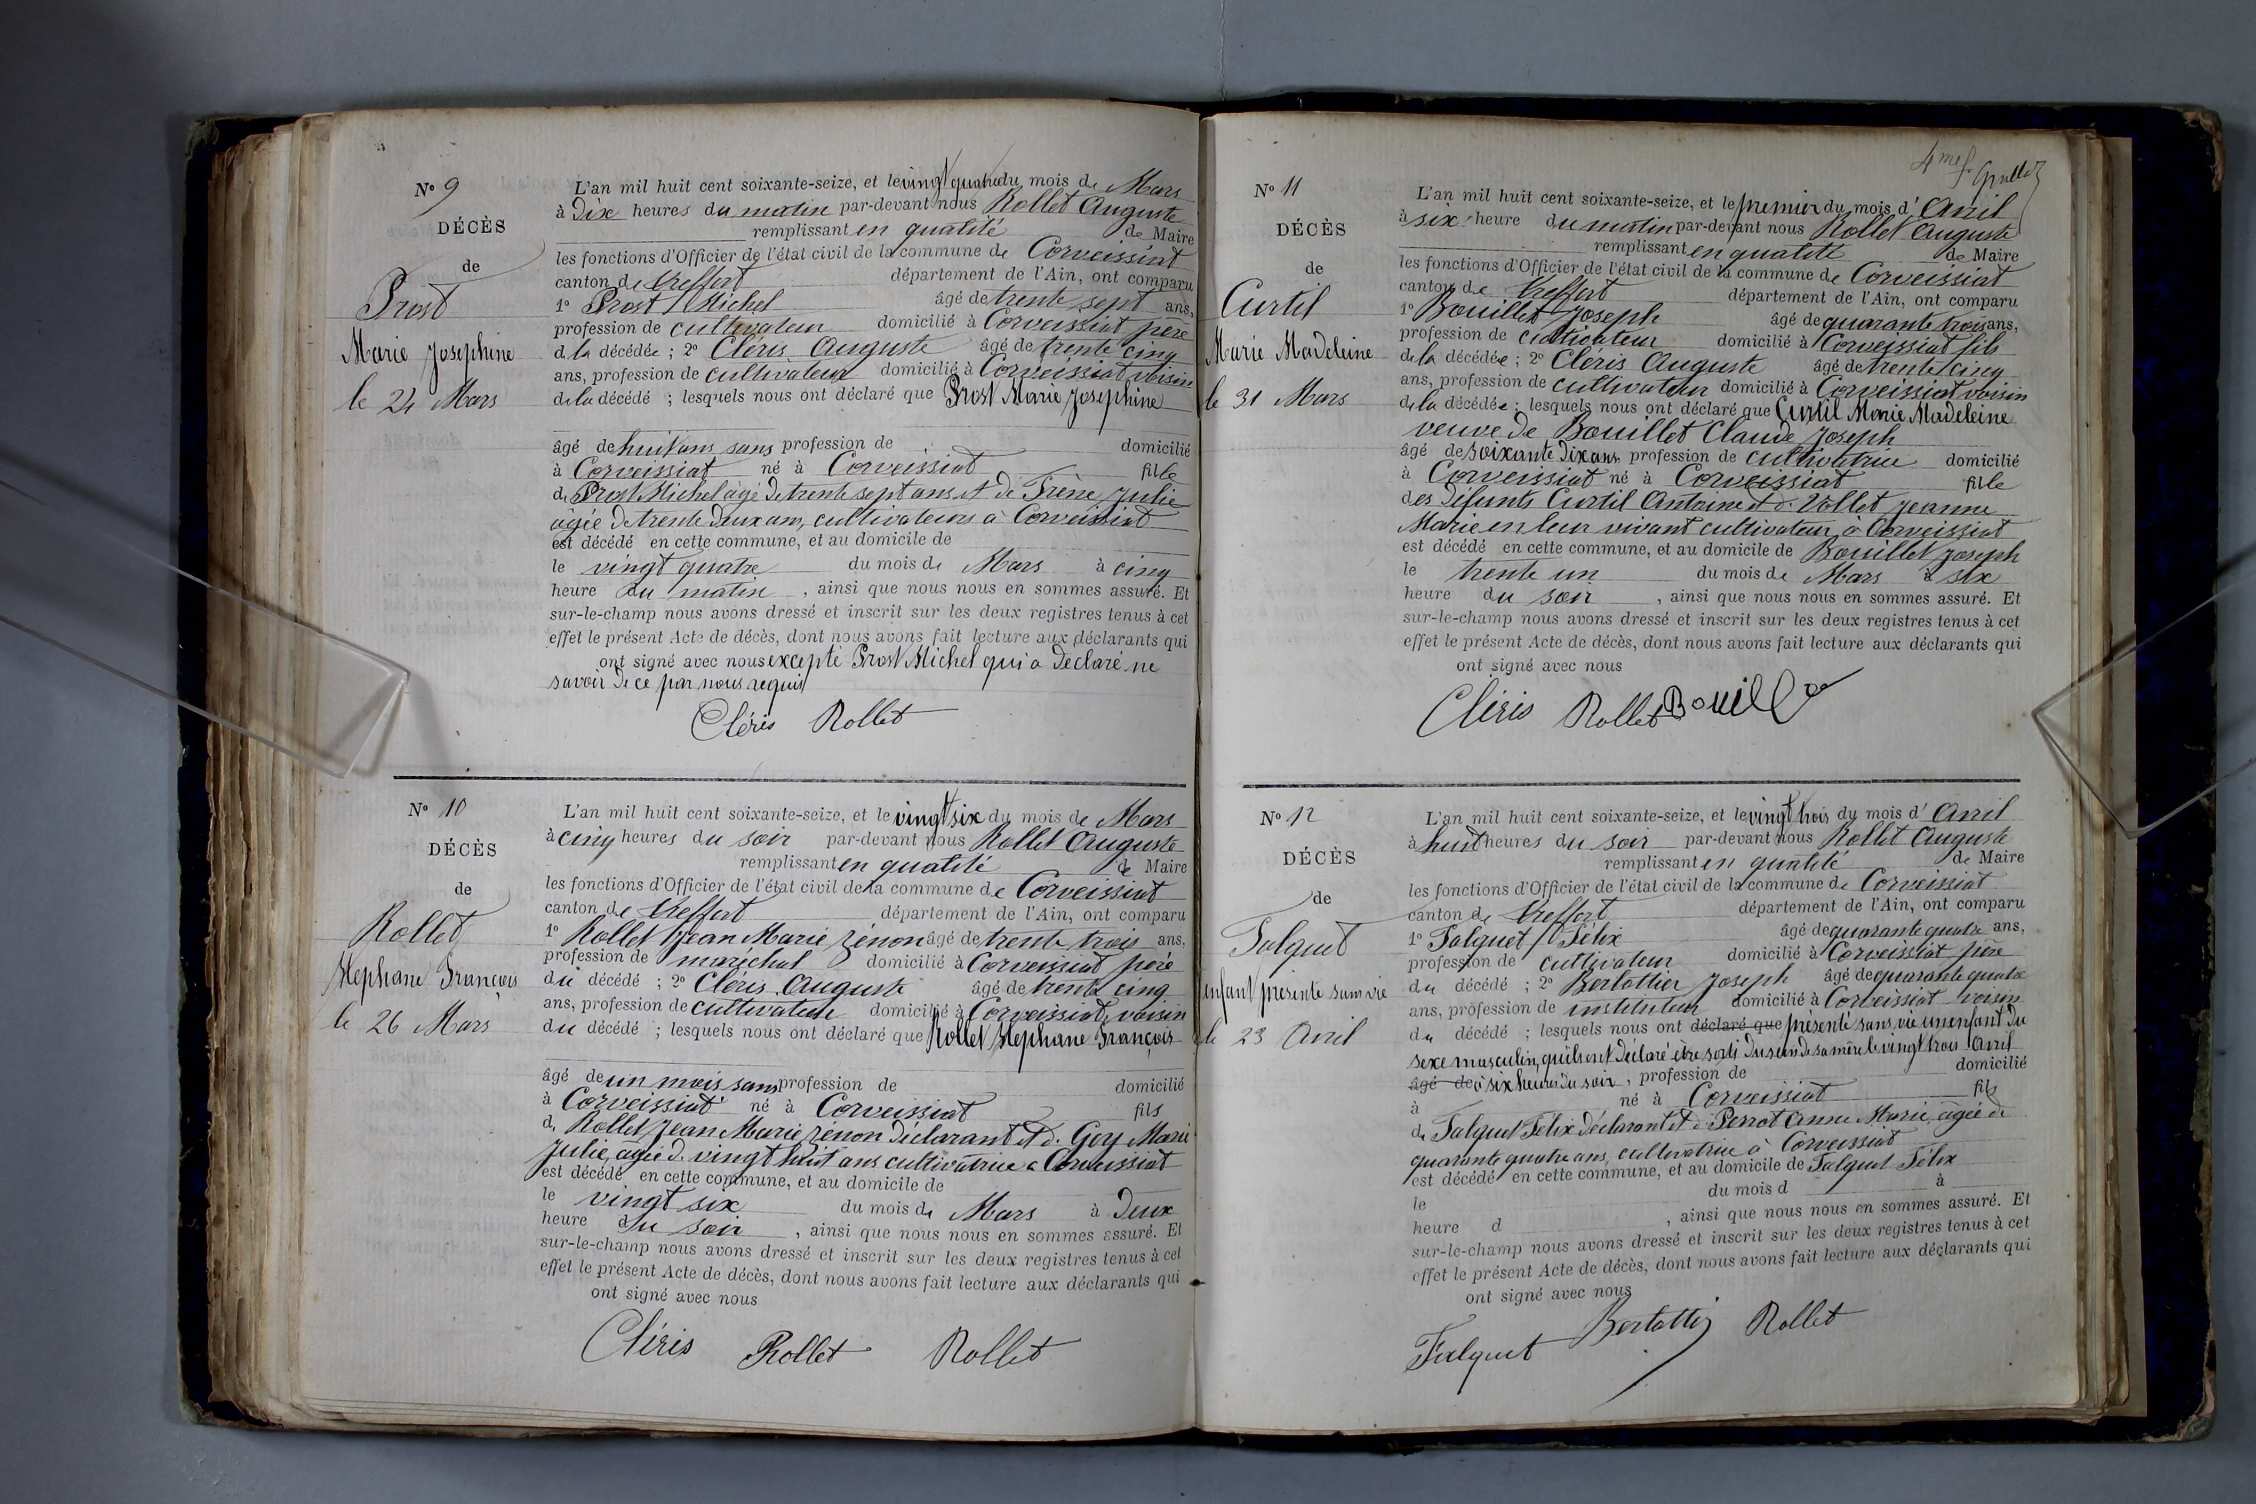 N° 9
DÉCÈS
de
Prost
Marie Josephine
le 24 Mars
L'an mil huit cent soixante-seize, et le vingt quatre du mois de Mars
à Dix heures du matin par-devant nous Rollet Auguste
remplissant en qualité de Maire
les fonctions d'Officier de l'état civil de la commune de Corveissiat
canton de Treffort département de l'Ain, ont comparu
1° Prost Michel âgé de trente sept ans,
profession de cultivateur domicilié à Corveissiat père
de la décédée ; 2° Cléris Auguste âgé de trente cinq
ans, profession de cultivateur domicilié à Corveissiat voisin
de la décédé ; lesquels nous ont déclaré que Prost Marie Josephine
âgé de huit ans sans profession de domicilié
à Corveissiat né à Corveissiat fille
de Prost Michel âgé de trente sept ans et de Frène Julie
âgée de trente deux ans, cultivateurs à Corveissiat
est décédé en cette commune, et au domicile de
le vingt quatre du mois de Mars à cinq
heure du matin , ainsi que nous nous en sommes assuré. Et
sur-le-champ nous avons dressé et inscrit sur les deux registres tenus à cet
effet le présent Acte de décès, dont nous avons fait lecture aux déclarants qui
ont signé avec nous excepté Prost Michel qui a déclaré ne
savoir de ce par nous requis
Cléris Rollet
N° 10
DÉCÈS
de
Rollet
Stephane François
le 26 Mars
L'an mil huit cent soixante-seize, et le vingt six du mois de Mars
à cinq heures du soir par-devant nous Rollet Auguste
remplissant en qualité de Maire
les fonctions d'Officier de l'état civil de la commune de Corveissiat
canton de Treffort département de l'Ain, ont comparu
1° Rollet Jean Marie Zénon âgé de trente trois ans,
profession de maréchal domicilié à Corveissiat père
du décédé ; 2° Cléris Auguste âgé de trente cinq
ans, profession de cultivateur domicilié à Corveissiat, voisin
du décédé ; lesquels nous ont déclaré que Rollet Stephane François
âgé de un mois sans profession de domicilié
à Corveissiat né à Corveissiat fils
de Rollet Jean Marie Zénon déclarant et de Goy Marie
Julie, agée de vingt huit ans cultivatrice a Corveissiat
est décédé en cette commune, et au domicile de
le vingt six du mois de Mars à Deux
heure du soir , ainsi que nous nous en sommes assuré. Et
sur-le-champ nous avons dressé et inscrit sur les deux registres tenus à cet
effet le présent Acte de décès, dont nous avons fait lecture aux déclarants qui
ont signé avec nous
Cléris Rollet Rollet
4me f.
N° 11
DÉCÈS
de
Curtil
Marie Madeleine
le 31 Mars
L'an mil huit cent soixante-seize, et le premier du mois d'Avril
à six heure du matin par-devant nous Rollet Auguste
remplissant en qualité de Maire
les fonctions d'Officier de l'état civil de la commune de Corveissiat
canton de Treffort département de l'Ain, ont comparu
1° Bouillet Joseph âgé de quarante trois ans,
profession de cultivateur domicilié à Corveissiat fils
de la décédée ; 2° Cléris Auguste âgé de trente cinq
ans, profession de cultivateur domicilié à Corveissiat voisin
de la décédée ; lesquels nous ont déclaré que Curtil Marie Madeleine
veuve de Bouillet Claude Joseph
âgé de soixante dix ans profession de cultivatrice domicilié
à Corveissiat né à Corveissiat fille
des défunts Curtil Antoine et de Vollet Jeanne
Marie en leur vivant cultivateur à Corveissiat
est décédé en cette commune, et au domicile de Bouillet Joseph
le trente un du mois de Mars à six
heure du soir , ainsi que nous nous en sommes assuré. Et
sur-le-champ nous avons dressé et inscrit sur les deux registres tenus à cet
effet le présent Acte de décès, dont nous avons fait lecture aux déclarants qui
ont signé avec nous
Cléris Rollet Bouille
N° 12
DÉCÈS
de
Falquet
enfant présenté sans vie
le 23 Avril
L'an mil huit cent soixante-seize, et le vingt trois du mois d'Avril
à huit heures du soir par-devant nous Rollet Auguste
remplissant en qualité de Maire
les fonctions d'Officier de l'état civil de la commune de Corveissiat
canton de Treffort département de l'Ain, ont comparu
1° Falquet Félix âgé de quarante quatre ans,
profession de cultivateur domicilié à Corveissiat père
du décédé ; 2° Bertottier Joseph âgé de quarante quatre
ans, profession de instituteur domicilié à Corveissiat voisin
du décédé ; lesquels nous ont déclaré que présenté sans vie un enfant du
sexe masculin, qu'ils ont déclaré être sorti du sein de sa mère le vingt trois Avril
âgé de à six heures du soir , profession de domicilié
à né à Corveissiat fils
de Falquet Félix déclarant et de Perrot Anne Marie, agée de
quarante quatre ans, cultivatrice à Corveissiat
est décédé en cette commune, et au domicile de Falquet Félix
le du mois d à
heure d , ainsi que nous nous en sommes assuré. Et
sur-le-champ nous avons dressé et inscrit sur les deux registres tenus à cet
effet le présent Acte de décès, dont nous avons fait lecture aux déclarants qui
ont signé avec nous
Falquet Bertottier Rollet